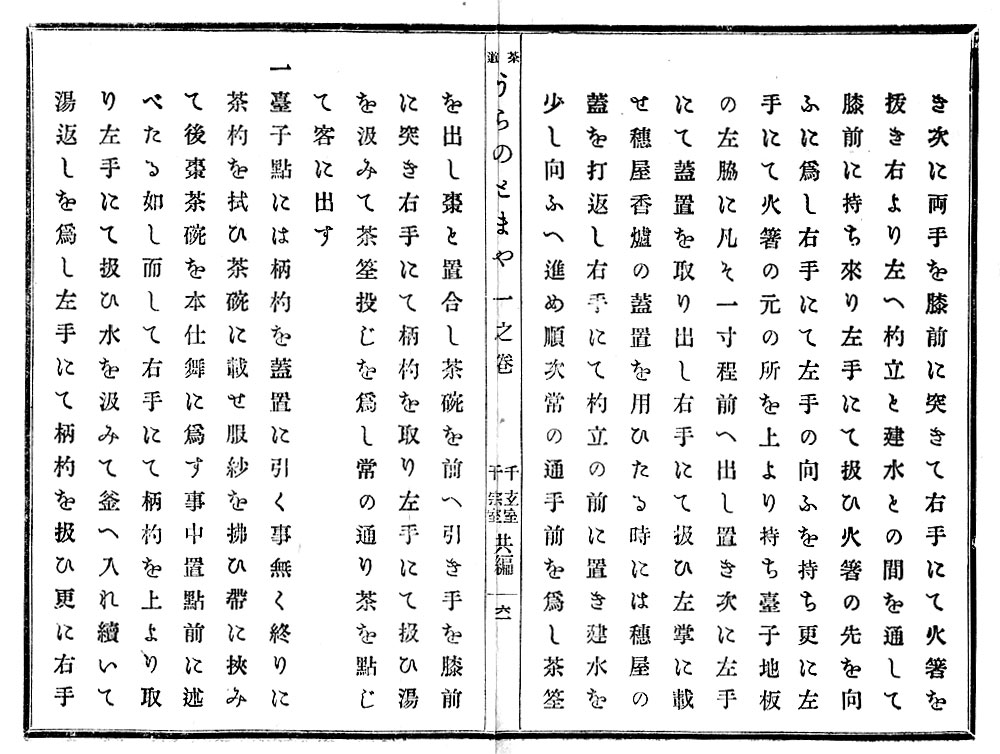 き次に両手を膝前に突きて右手にて火箸を
拔き右より左へ杓立と建水との間を通して
膝前に持ち來り左手にて扱ひ火箸の先を向
ふに爲し右手にて左手の向ふを持ち更に左
手にて火箸の元の所を上より持ち臺子地板
の左脇に凡そ一寸程前へ出し置き次に左手
にて蓋置を取り出し右手にて扱ひ左掌に載
せ穗屋香爐の蓋置を用ひたる時には穗屋の
蓋を打返し右手にて杓立の前に置き建水を
少し向ふへ進め順次常の通手前を爲し茶筌
茶道
うらのとまや一之卷
千玄室
千宗室
共編
六一
を出し棗と置合し茶碗を前へ引き手を膝前
に突き右手にて柄杓を取り左手にて扱ひ湯
を汲みて茶筌投じを爲し常の通り茶を點じ
て客に出す
一臺子點には柄杓を蓋置に引く事無く終りに
茶杓を拭ひ茶碗に載せ服紗を拂ひ帶に挾み
て後棗茶碗を本仕舞に爲す事中置點前に述
べたる如し而して右手にて柄杓を上より取
り左手にて扱ひ水を汲みて釜へ入れ續いて
湯返しを爲し左手にて柄杓を扱ひ更に右手